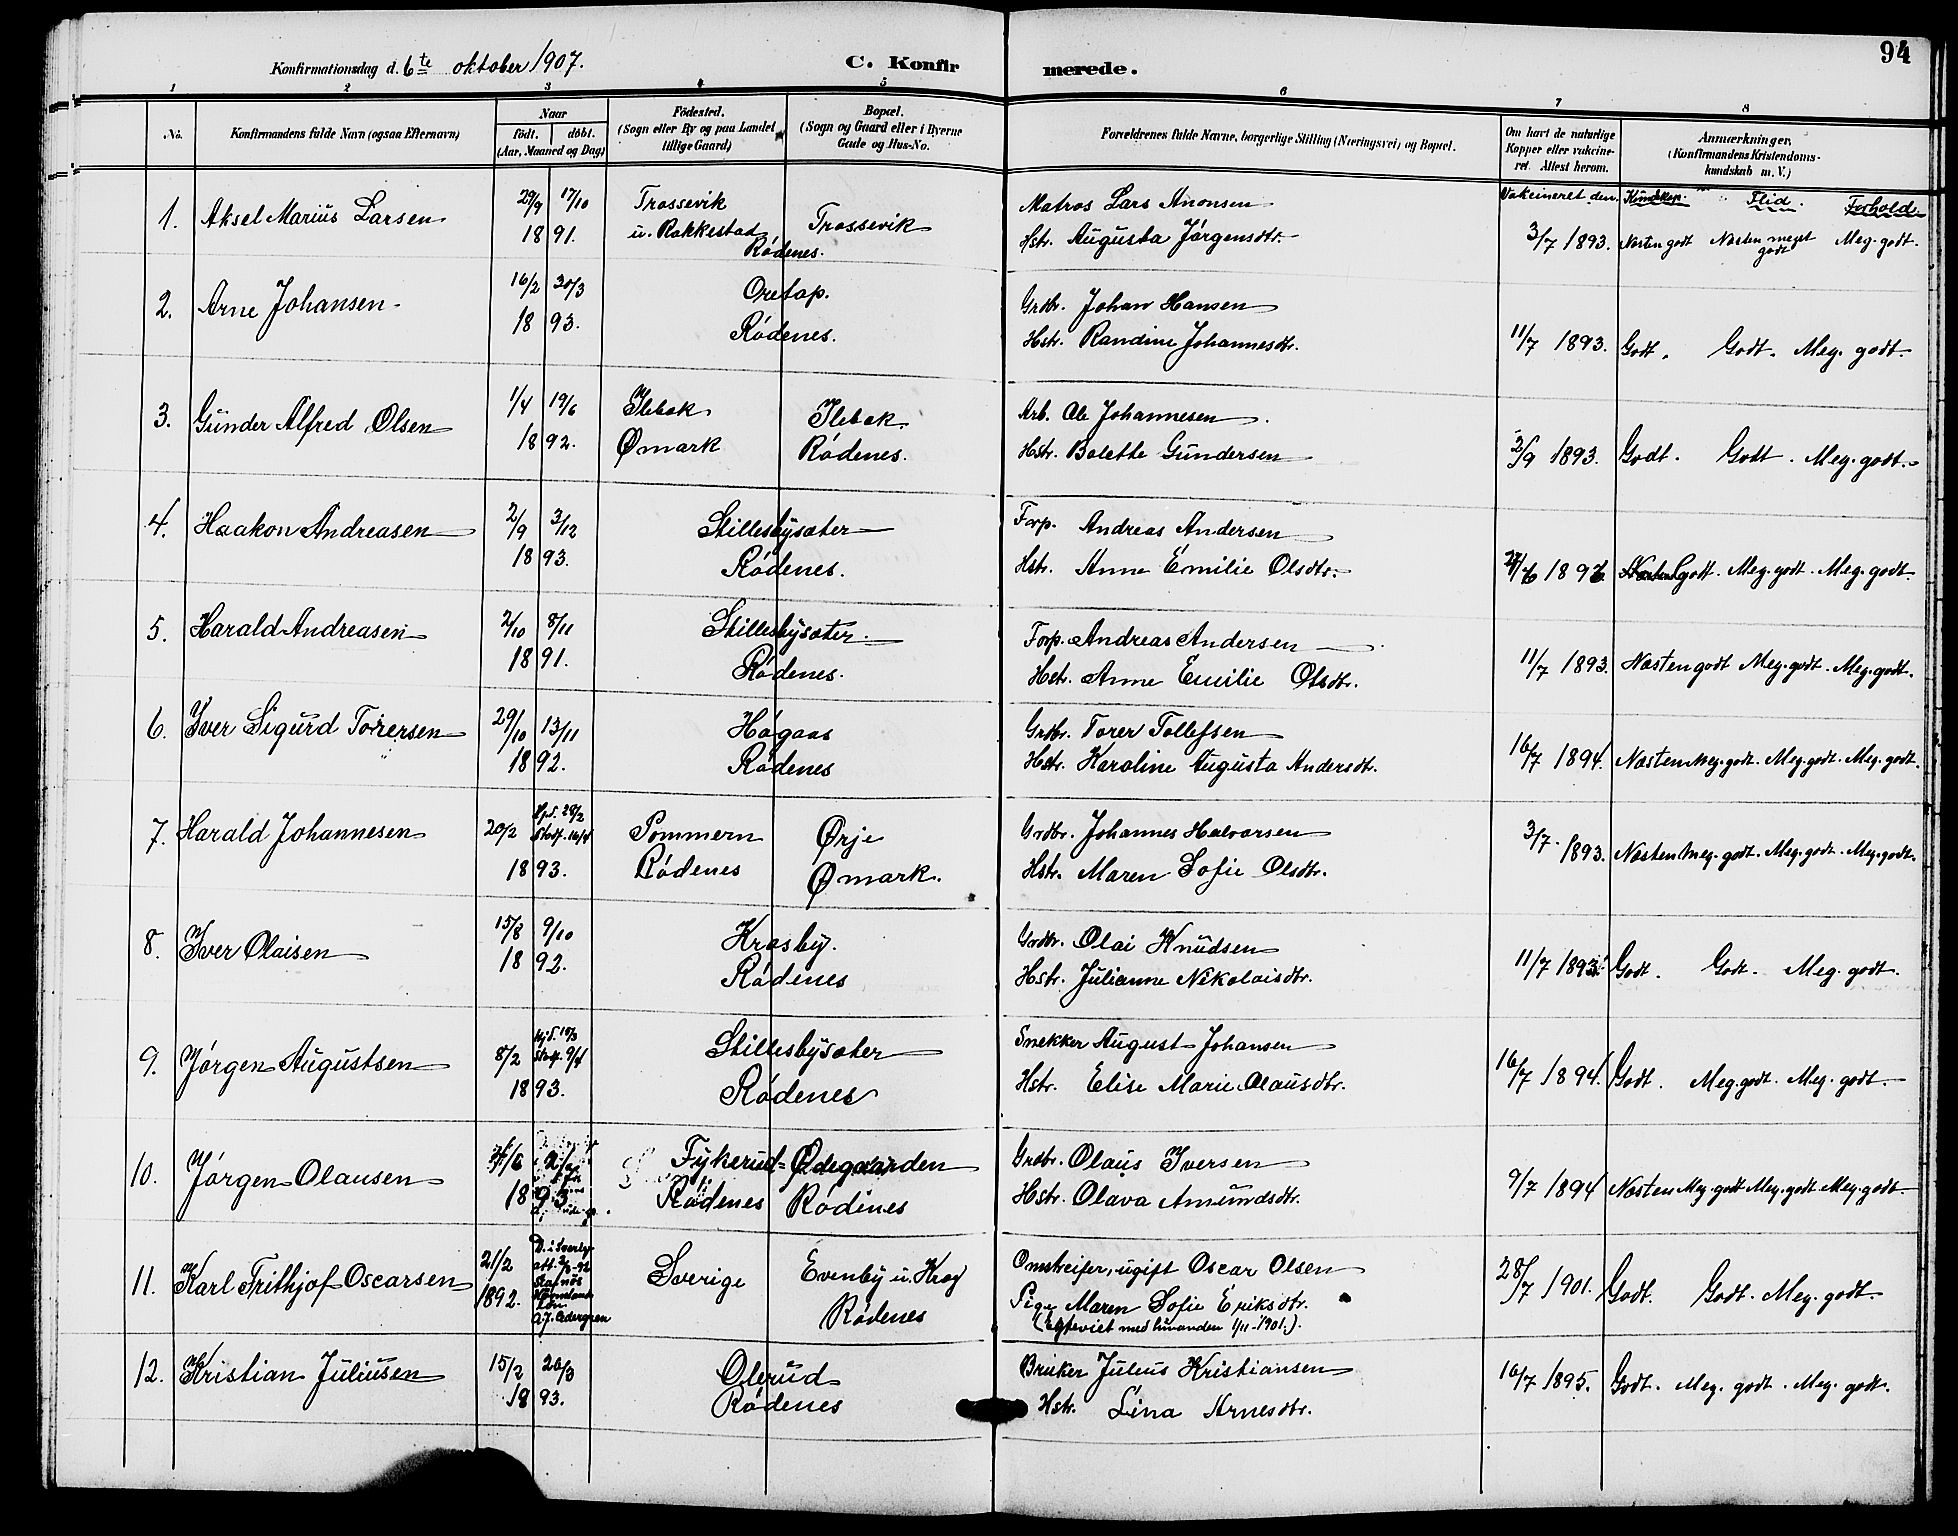 94
Konfirmationsdag d. 6te oktober 1907.
C. Konfirmerede.
1 2 3 4 5 6 7 8
No.
Konfirmandens fulde Navn (ogsaa Efternavn)
Naar
født. døbt.
(Aar, Maaned og Dag)
Fødested.
(Sogn eller By og paa Landet
tillige Gaard)
Bopæl.
(Sogn og Gaard eller i Byerne
Gade og Hus-No.
Forældrenes fulde Navne, borgerlige Stilling (Næringsvei) og Bopæl.
Om havt de naturlige
Kopper eller vakcine-
ret. Attest herom.
Anmærkninger,
(Konfirmandens Kristendoms-
kundskab m. V.)
Vakcineret den. Kundskap. Flid. Forhold.
1. Aksel Marius Larsen 29/9 17/10 Trossevik Trossevik Matros Lars Anonsen
18 91. u. Rakkestad Hstr. Augusta Jørgensdtr. 3/7 1893. Næsten godt Næsten meget godt Meg. godt.
Rødenes.
2. Arne Johansen 16/2 30/3 Oretop. Grdbr. Johan Hansen
18 93. Rødenes. Hstr. Randine Johannesdtr. 11/7 1893. Godt. Godt. Meg. godt.
3. Gunder Alfred Olsen 1/4 19/6 Ilebek Ilebek Arb. Ole Johannesen
18 92. Ømark Rødenes. Hstr. Bolette Gundersen 2/9 1893. Godt. Godt. Meg. godt.
4. Haakon Andreasen 2/9 3/12 Stillesbysæter Forp. Andreas Andersen
18 93. Rødenes. Hstr. Anne Emilie Olsdtr. Godt. Meg. godt. Meg. godt.
5. Harald Andreasen 2/10 8/11 Stillesbysæter Forp. Andreas Andersen
18 91. Rødenes. Hstr. Anne Emilie Olsdtr. 11/7 1893. Næsten godt Meg. godt. Meg. godt.
6. Iver Sigurd Torersen 29/10 13/11 Høgaas Grdbr. Torer Tollefsen
18 92. Rødenes Hstr. Karoline Augusta Andersdtr. 16/7 1894. Næsten Meg. godt. Meg. godt. Meg. godt.
7. Harald Johannesen 20/2 Hjd. 28/2 Stadf. 16/4 Pommern Ørje Grdbr. Johannes Halvorsen
18 93. Rødenes Ømark. Hstr. Maren Sofie Olsdtr. 3/7 1893. Næsten Meg. godt. Meg. godt. Meg. godt.
8. Iver Olaisen 15/8 9/10 Krosby. Grdbr. Olai Knudsen
18 92. Rødenes Hstr. Julianne Nikolaisdtr. 11/7 1893. Godt. Godt. Meg. godt.
9. Jørgen Augustsen 8/2 Hjd. 19/3 Stadf. 9/4 Stillesbysæter Snekker August Johansen
18 93. Rødenes Hstr. Elise Marie Olausdtr. 16/7 1894. Godt. Meg. godt. Meg. godt.
10. Jørgen Olausen Fykerud= Ødegaarden Grdbr. Olaus Iversen
18 93 Rødenes Rødenes Hstr. Olava Amundsdtr. 9/7 1894 Næsten Meg. godt Meg. godt Meg. godt.
11. Karl Frithjof Oscarsen 21/2 D. i Sverig Sverige Evenby u. Krog Omstreifer, ugift Oscar Olsen
1892. Rødenes Pige Maren Sofie Eriksdtr. 28/7 1901. Godt. Godt. Meg. godt.
(Egteviet med hinanden 1/11-1901.).
12. Kristian Juliusen 15/2 20/3 Olerud Bruker Julius Kristiansen
18 93. Rødenes Hstr. Lina Arnesdtr. 16/7 1895. Godt. Meg. godt. Meg. godt.